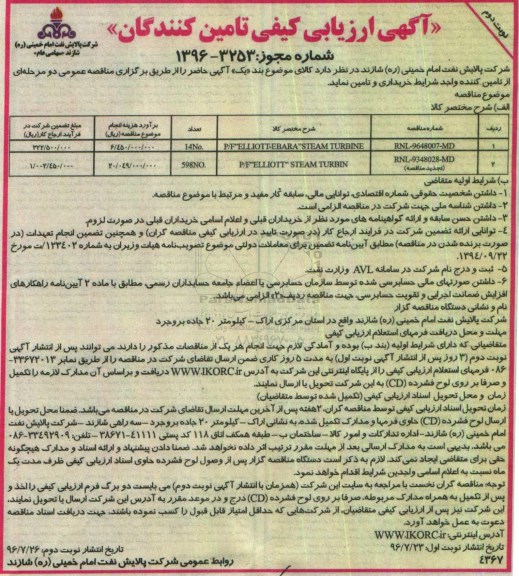 نوبت دوم
«آگهی ارزیابی کیفی تامین کنندگان»
شرکت پالایش نفت امام خمینی (ره)
شازند «سهامی عام»
شماره مجوز: ۳۲۵۳-۱۳۹۶
شرکت پالایش نفت امام خمینی (ره) شازند در نظر دارد کالای موضوع بند «یک» آگهی حاضر را از طریق برگزاری مناقصه عمومی دو مرحله‌ای
از تامین کننده واجد شرایط خریداری و تامین نماید.
موضوع مناقصه
الف) شرح مختصر کالا
ردیف شماره مناقصه شرح مختصر کالا تعداد برآورد هزینه انجام موضوع مناقصه (ریال) مبلغ تضمین شرکت در فرآیند ارجاع کار (ریال)
۱ RNL-9648007-MD P/F"ELLIOTT-EBARA"STEAM TURBINE 14No. ۶/۴۵۰/۰۰۰/۰۰۰ ۳۲۲/۵۰۰/۰۰۰
۲ RNL-9348028-MD (تجدید مناقصه) P/F"ELLIOTT" STEAM TURBIN 598NO. ۲۰/۰۴۹/۰۰۰/۰۰۰ ۱/۰۰۲/۴۵۰/۰۰۰
ب) شرایط اولیه متقاضی
۱- داشتن شخصیت حقوقی، شماره اقتصادی، توانایی مالی، سابقه کار مفید و مرتبط با موضوع مناقصه.
۲- داشتن شناسه ملی جهت شرکت در مناقصه الزامی است.
۳- داشتن حسن سابقه و ارائه گواهینامه های مورد نظر از خریداران قبلی و اعلام اسامی خریداران قبلی در صورت لزوم.
۴- توانایی ارائه تضمین شرکت در فرایند ارجاع کار (در صورت تایید در ارزیابی کیفی مناقصه گران) و همچنین تضمین انجام تعهدات (در
صورت برنده شدن در مناقصه) مطابق آیین‌نامه تضمین برای معاملات دولتی موضوع تصویب‌نامه هیات وزیران به شماره ۱۲۳۴۰۲/ت مورخ
۱۳۹۴/۰۹/۲۲.
۵- ثبت و درج نام شرکت در سامانه AVL وزارت نفت.
۶- داشتن صورتهای مالی حسابرسی شده توسط سازمان حسابرسی یا اعضاء جامعه حسابداران رسمی، مطابق با ماده ۲ آیین‌نامه راهکارهای
افزایش ضمانت اجرایی و تقویت حسابرسی، جهت مناقصه ردیف «۲» الزامی می‌باشد.
نام و نشانی دستگاه مناقصه گزار
شرکت پالایش نفت امام خمینی (ره) شازند واقع در استان مرکزی اراک – کیلومتر ۲۰ جاده بروجرد
مهلت و محل دریافت فرمهای استعلام ارزیابی کیفی
متقاضیانی که دارای شرایط اولیه (بند ب) بوده و آمادگی لازم جهت انجام هر یک از مناقصات مذکور را دارند می توانند پس از انتشار آگهی
نوبت دوم (۳ روز پس از انتشار آگهی نوبت اول) به مدت ۵ روز کاری ضمن ارسال تقاضای شرکت در مناقصه را از طریق نمابر ۳۳۶۷۲۰۱۳-
۰۸۶ فرمهای استعلام ارزیابی کیفی را از پایگاه اینترنتی این شرکت به آدرس WWW.IKORC.ir دریافت و براساس آن مدارک لازمه را تکمیل
و صرفا بر روی لوح فشرده (CD) به این شرکت تحویل یا ارسال نمایند.
زمان و محل تحویل اسناد ارزیابی کیفی (تکمیل شده توسط متقاضیان)
زمان تحویل اسناد ارزیابی کیفی توسط مناقصه گران، ۲هفته پس از آخرین مهلت ارسال تقاضای شرکت در مناقصه می‌باشد. ضمنا محل تحویل یا
ارسال لوح فشرده (CD) حاوی فرمها و مدارک تکمیل شده، به نشانی اراک – کیلومتر ۲۰ جاده بروجرد – سه راهی شازند – شرکت پالایش نفت
امام خمینی (ره) شازند- اداره تدارکات و امور کالا – ساختمان ب – طبقه همکف اتاق ۱۱۸ کد پستی ۴۱۱۱۱-۳۸۶۷۱ – تلفن: ۳۳۴۹۲۹۰۹-۰۸۶
می باشد. بدیهی است به مدارک ارسالی بعد از مهلت مقرر ترتیب اثر داده نخواهد شد. ضمنا دادن پیشنهاد و ارائه اسناد و مدارک هیچگونه
حقی برای متقاضی ایجاد نمی کند. لازم به ذکر است دستگاه مناقصه گزار پس از وصول لوح فشرده حاوی اسناد ارزیابی کیفی ظرف مدت یک
ماه نسبت به اعلام اسامی واجدین شرایط اقدام خواهد نمود.
توجه: مناقصه گران نخست با مراجعه به سایت این شرکت (همزمان با انتشار آگهی نوبت دوم) می بایست دو برگ فرم ارزیابی کیفی را اخذ و
پس از تکمیل به همراه مدارک مربوطه، صرفا بر روی لوح فشرده (CD) درج و در موعد مقرر به آدرس این شرکت ارسال یا تحویل نمایند.
این شرکت نیز پس از ارزیابی کیفی متقاضیان، از شرکت‌هایی که حداقل امتیاز قابل قبول را کسب نموده باشند، جهت دریافت اسناد مناقصه
دعوت به عمل خواهد آورد.
آدرس اینترنتی: WWW.IKORC.ir
تاریخ انتشار نوبت اول: ۹۶/۷/۲۳ تاریخ انتشار نوبت دوم: ۹۶/۷/۲۶
۴۳۶۷ روابط عمومی شرکت پالایش نفت امام خمینی (ره) شازند